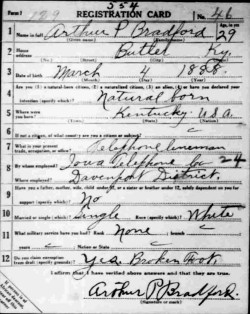 354
Form 1 189 REGISTRATION CARD No. 46
1 Name in full Arthur P Bradford Age, in yrs. 29
(Given name) (Family name)
2 Home address Butler Ky.
(No.) (Street) (City) (State)
3 Date of birth March 4 1888
(Month) (Day) (Year)
4 Are you (1) a natural-born citizen, (2) a naturalized citizen, (3) an alien, (4) or have you declared your
intention (specify which)? Natural born
5 Where were you born? Kentucky US
(Town) (State) (Nation)
6 If not a citizen, of what country are you a citizen or subject?
7 What is your present trade, occupation, or office? Telephone lineman
8 By whom employed? Iowa Telephone Co 24
Where employed? Davenport District.
9 Have you a father, mother, wife, child under 12, or a sister or brother under 12, solely dependent on you for
support (specify which)? No
10 Married or single (which)? Single Race (specify which)? White
11 What military service have you had? Rank None ; branch c
years c ; Nation or State c
12 Do you claim exemption from draft (specify grounds)? Yes Broken Foot
I affirm that I have verified above answers and that they are true.
Arthur P Bradford.
(Signature or mark)